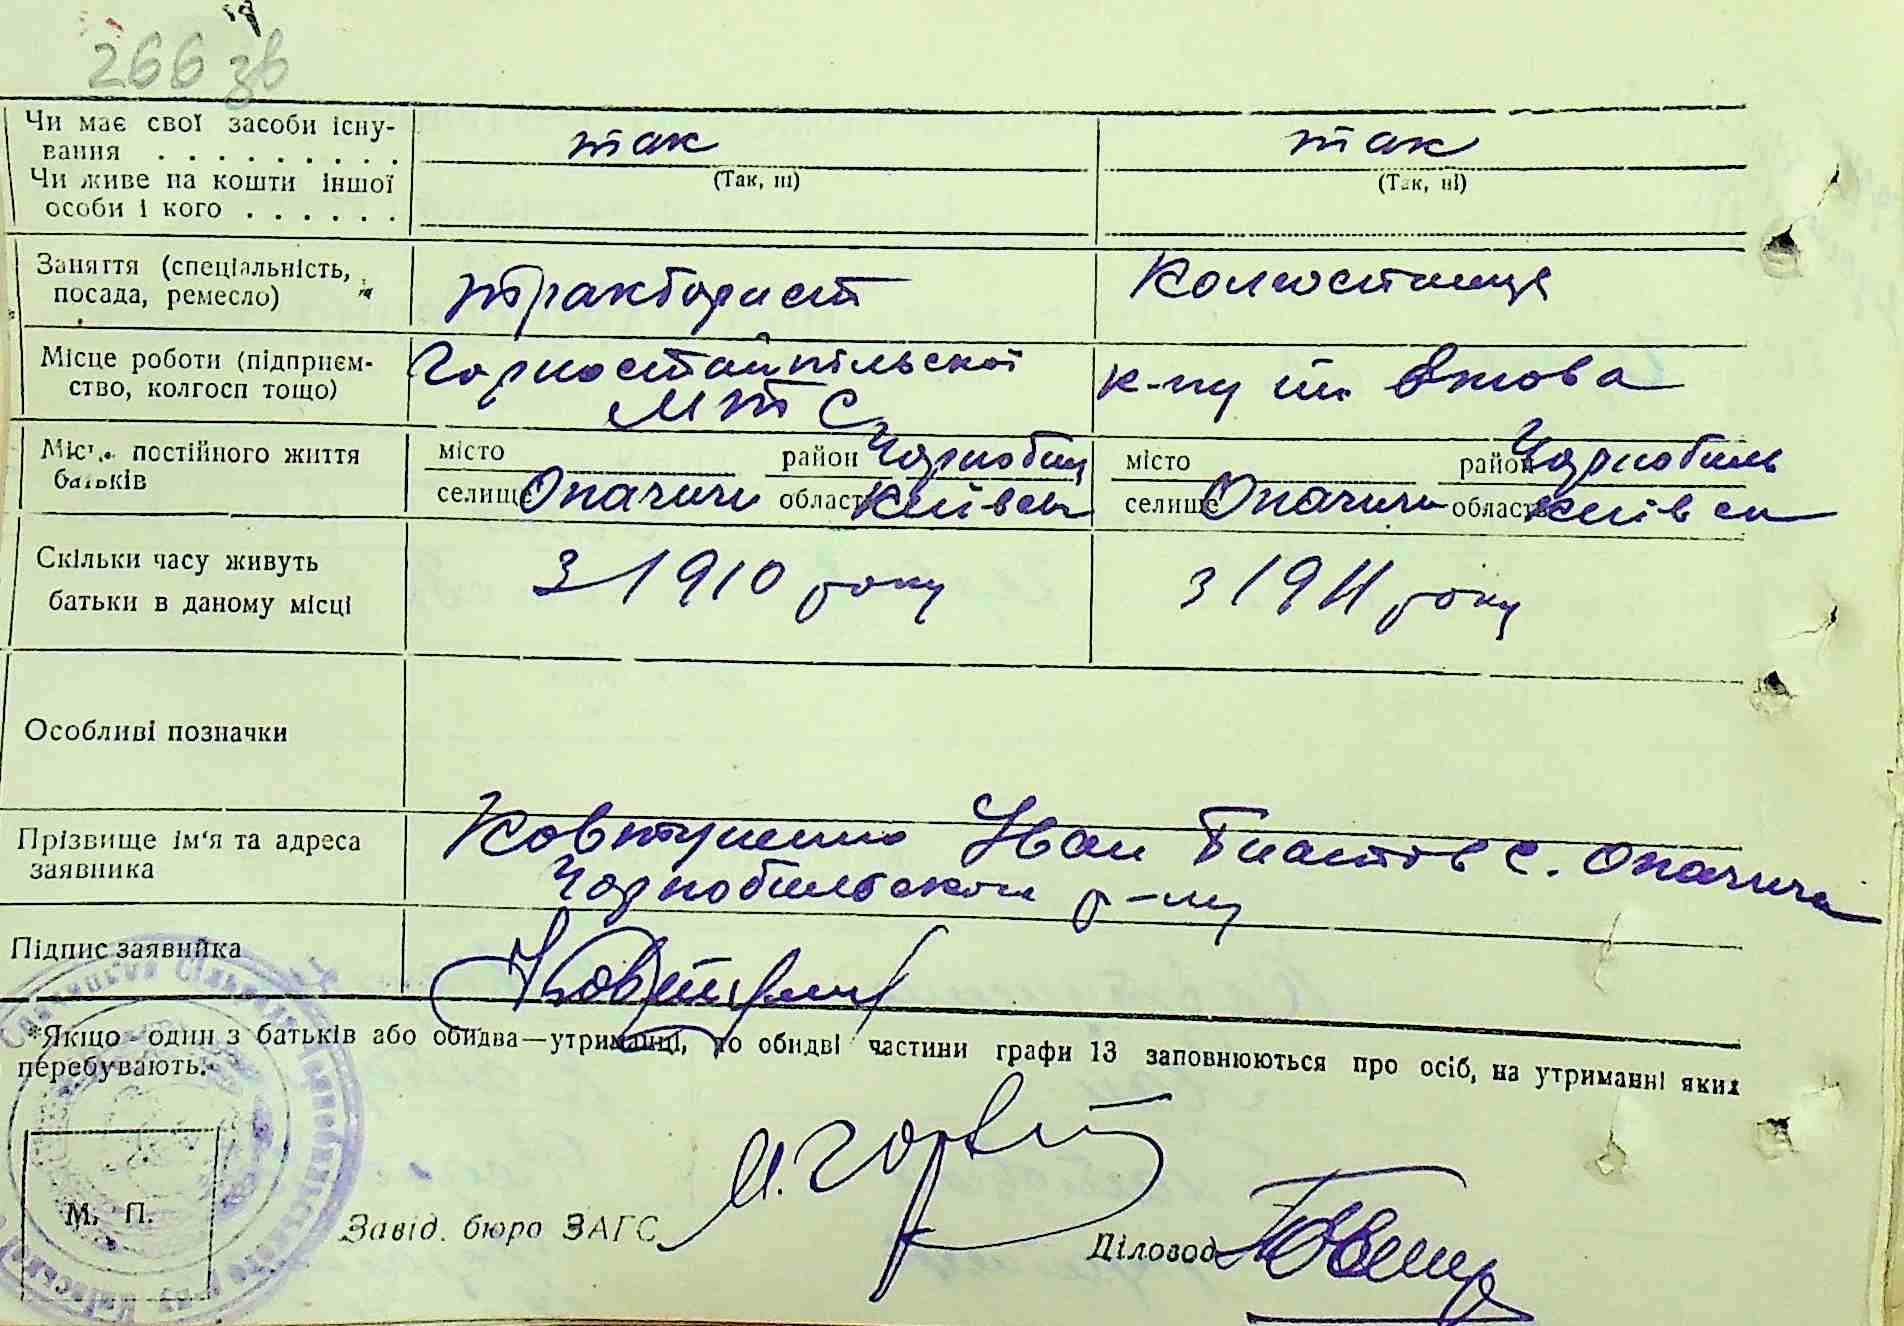 266 зв
Чи має свої засоби існу-
вання . . . . . . . . . так так
(Так, ні) (Так, ні)
Чи живе на кошти іншої
особи і кого . . . . . .
Заняття (спеціальність,
посада, ремесло) тракторист Колгоспниця
Місце роботи (підприєм-
ство, колгосп тощо) Горностайпільскої МТС к-пу ім
постійного життя
батьків
місто район Чорнобил місто район Чорнобиль
селище Опачичи область Київськ селище Опачичи область Київськ
Скільки часу живуть
батьки в даному місці з 1910 року з 1911 року
Особливі позначки
Прізвище ім'я та адреса
заявника Ковтуненко Іван с. Опачичи
Чорнобильского р-ну
Підпис заявника
*Якщо один з батьків або обидва—утриманці, то обидві частини графи 13 заповнюються про осіб, на утриманні яких
перебувають.
М. П.
Завід. бюро ЗАГС
Діловод